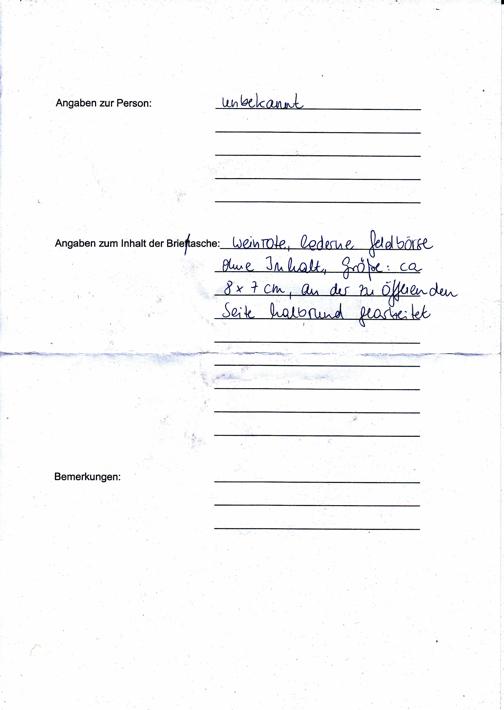 Angaben zur Person: unbekannt
Angaben zum Inhalt der Brieftasche: weinrote, lederne Geldbörse
ohne Inhalt, Größe: ca
8 x 7 cm, an der zu öffnenden
Seite halbrund gearbeitet
Bemerkungen: